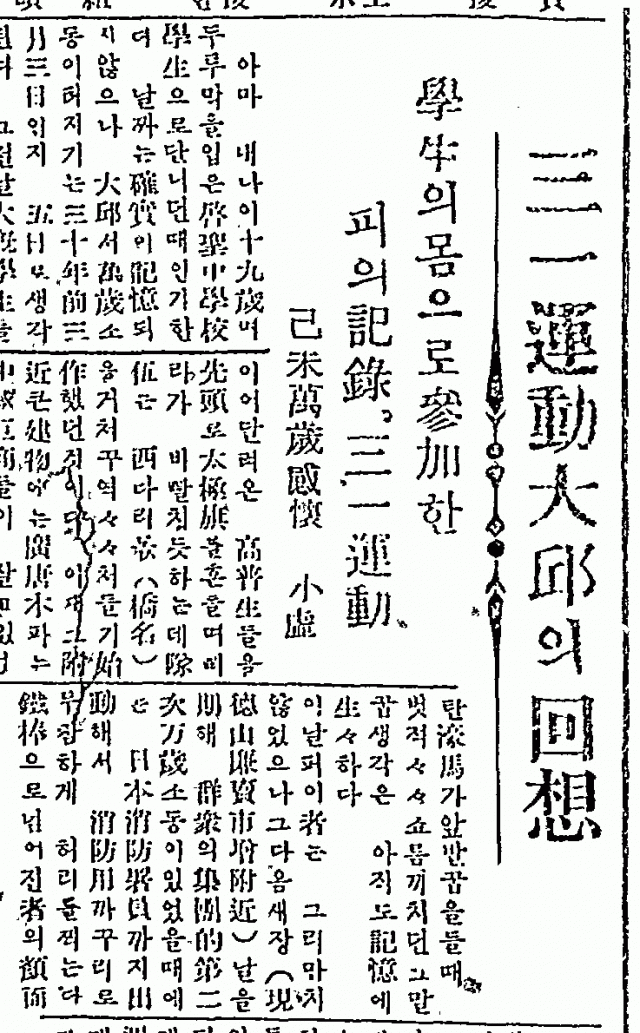 三一運動大邱의 回想
學生의몸으로參加한
피의記錄、三一運動
己未萬歲感懷 小虛
아마 내나이十九歲며
두루막을입은啓聖中學校
學生으로단니던때인가한
더 날짜는確實이記憶되
지않으나 大邱서萬歲소
동이허지기는三十年前三
月三日인지 五日로생각
이어단려온 高普生들을
先頭로太極旗를흔들며떼
라가 비발치듯하는데隊
伍는 西다리 (橋名)
을거처꾸역々々처들기始
作했던것이다 이재그附
近큰建物에는廣唐木파는
탄濠馬가앞반꿉을들때
벗적々々쇼름끼치던그말
꿉생각은 아직도記憶에
生々하다
이날퍼이者는 그리마치
않었으나그다음새장(現
德山廉賣市場附近)날을
期해 群衆의集團的第二
次万歲소동이있었을때에
는 日本消防署員까지出
動해서 消防用까꾸리로
무참하게 허리를찍는다
鐵棒으로넘어진者의顔面